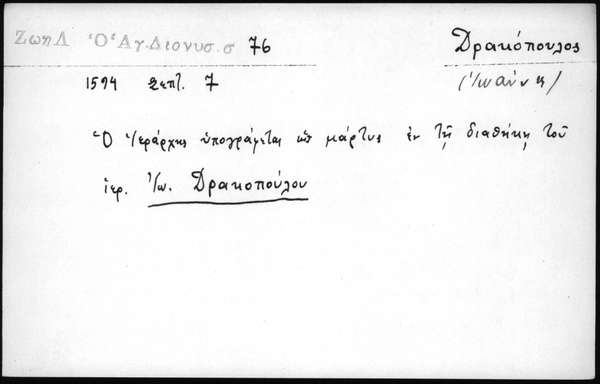 Ζωη Λ Ὁ Ἅγ. Διονυσ. σ 76 Δρακόπουλος
1594 Σεπτ. 7 (Ἰωάννης)
Ὁ Ἱεράρχης ὑπογράφεται ὡς μάρτυς ἐν τῇ διαθήκῃ τοῦ
ἱερ. Ἰω. Δρακοπούλου